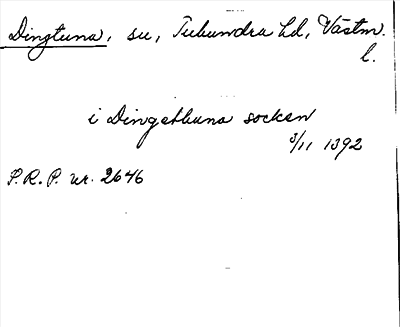 Dingtuna, sn, Tuhundra hd, Västm.
l.
i Dingethuna socken
3/11 1392
P.R.P. nr. 2646